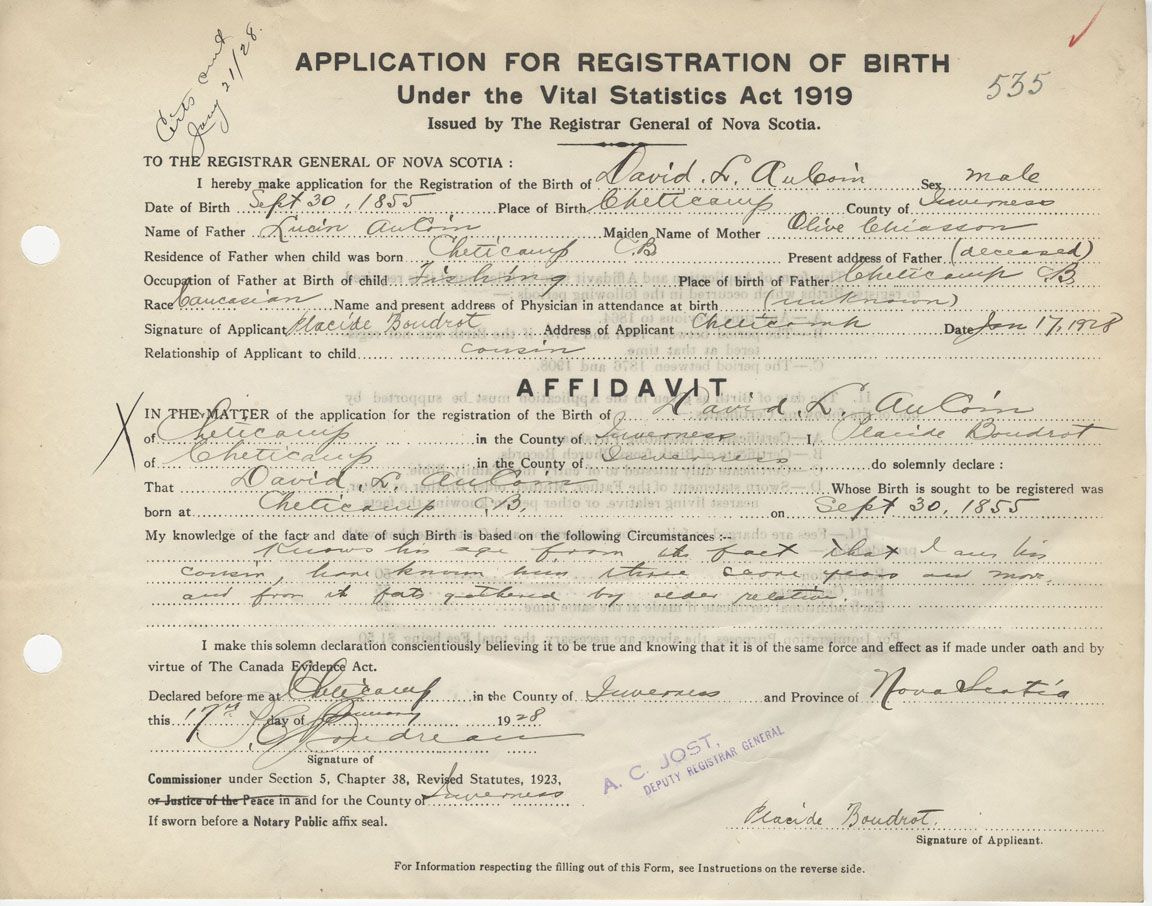 Certs sent
Jany 21/28.
535
APPLICATION FOR REGISTRATION OF BIRTH
Under the Vital Statistics Act 1919
Issued by The Registrar General of Nova Scotia.
TO THE REGISTRAR GENERAL OF NOVA SCOTIA :
I hereby make application for the Registration of the Birth of David. L. AuCoin Sex male
Date of Birth Sept 30, 1855 Place of Birth Cheticamp County of Inverness
Name of Father Lucin AuCoin Maiden Name of Mother Olive Chiasson
Residence of Father when child was born Cheticamp C.B Present address of Father (deceased)
Occupation of Father at Birth of child Fishing Place of Birth of Father Cheticamp CB
Race Caucasian Name and present address of Physician in attendance at birth (unknown)
Signature of Applicant Placide Boudrot Address of Applicant Cheticamp Date Jan 17, 1928
Relationship of Applicant to child cousin
AFFIDAVIT
IN THE MATTER of the application for the registration of the Birth of David. L. AuCoin
of Cheticamp in the County of Inverness I, Placide Boudrot
of Cheticamp in the County of Inverness do solemnly declare :
That David. L. AuCoin Whose Birth is sought to be registered was
born at Cheticamp C.B. on Sept 30, 1855
My knowledge of the fact and date of such Birth is based on the following Circumstances :--
Knows his age from the fact that I am his
cousin, have known him three score years and more.
and from the facts gathered by older relative.
I make this solemn declaration conscientiously believing it to be true and knowing that it is of the same force and effect as if made under oath and by
virtue of The Canada Evidence Act.
Declared before me at Cheticamp in the County of Inverness and Province of Nova Scotia
this 17th day of January 1928
Boudreau
Signature of
Commissioner under Section 5, Chapter 38, Revised Statutes, 1923,
or Justice of the Peace in and for the County of Inverness
If sworn before a Notary Public affix seal.
A. C. JOST,
DEPUTY REGISTRAR GENERAL
Placide Boudrot.
Signature of Applicant.
For Information respecting the filling out of this Form, see Instructions on the reverse side.